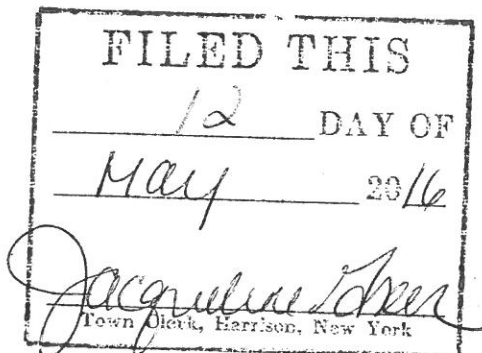 FILED THIS
12 DAY OF
May 2016
Jacqueline
Town Clerk, Harrison, New York